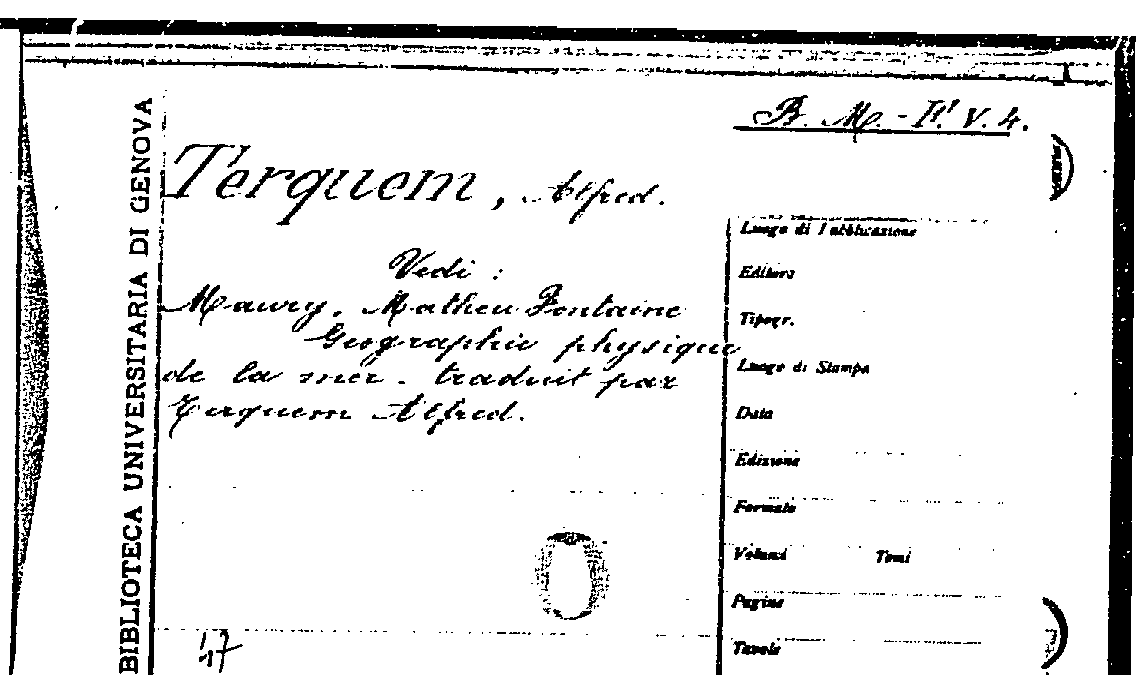 BIBLIOTECA UNIVERSITARIA DI GENOVA
B. M. - II. V. 4.
Terquem, Alfred.
Vedi :
Maury, Matheu Fontaine
Geographie physique
de la mer. traduit par
Terquem Alfred.
47
Luogo di Pubblicazione
Editore
Tipogr.
Luogo di Stampa
Data
Edizione
Formato
Volumi Tomi
Pagine
Tavole